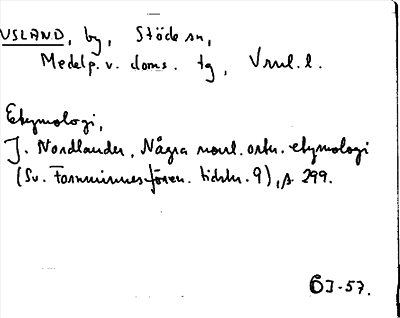 USLAND, by, Stöde sn,
Medelp. v. doms. tg, Vnrl. l.
Etymologi,
J. Nordlander, Några norrl. ortn. etymologi
(Sv. Fornminnesfören. tidskr. 9), s 299.
ÖJ-57.